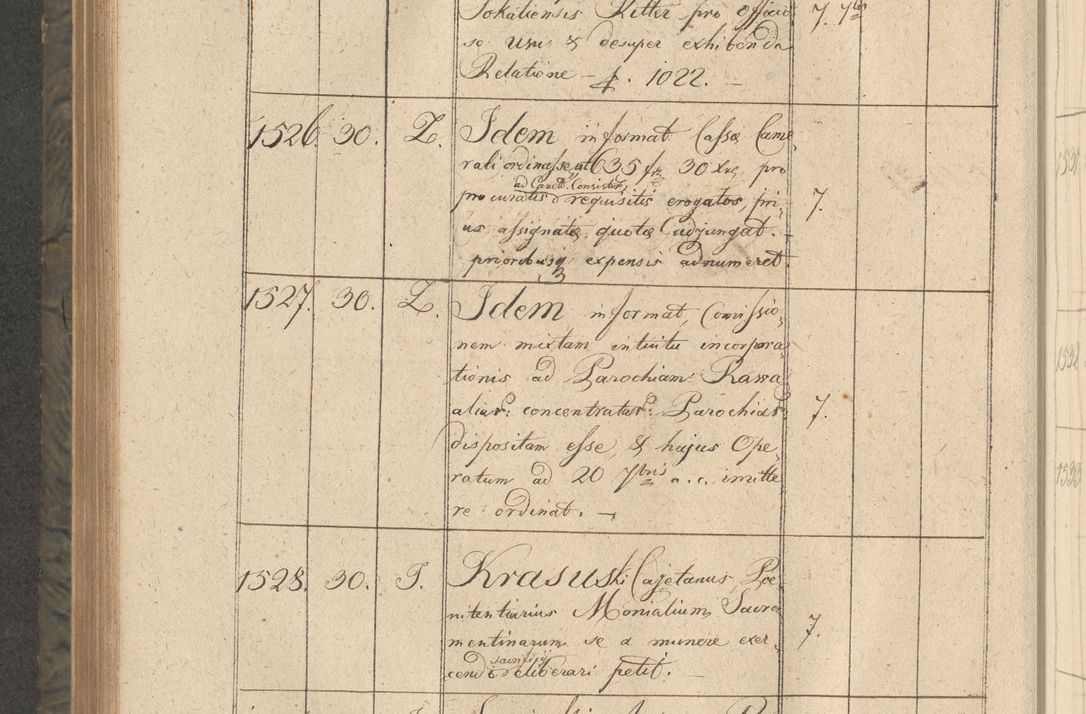 Sokaliensis Ritter pro officio 7. 7br
so Usu & desuper exhibenda
Relatione – 1022. –
1526. 30. Z. Idem informat Cassæ Came
rali ordinasse, ut 635 f 30 xr, pro
ad Conced. Consistor,
procuratis requisitis erogatos, pri
us assignatæ quotæ adjungat. 7.
prioribusq expensis adnumeret.
1527. 30. Z. Idem informat, Comissio
nem mixtam intuitu incorpora
tionis ad Parochiam Rawa
aliar: concentratar: Parochiar 7.
dispositam esse, & hujus Ope
ratum ad 20 7bris a. c. imitte
re ordinat. –
1528. 30. I. Krasuski Cajetanus Poe
nitentiarius Monialium Sacra
mentinarum se a munere exer 7.
cendi deliberari petit. –